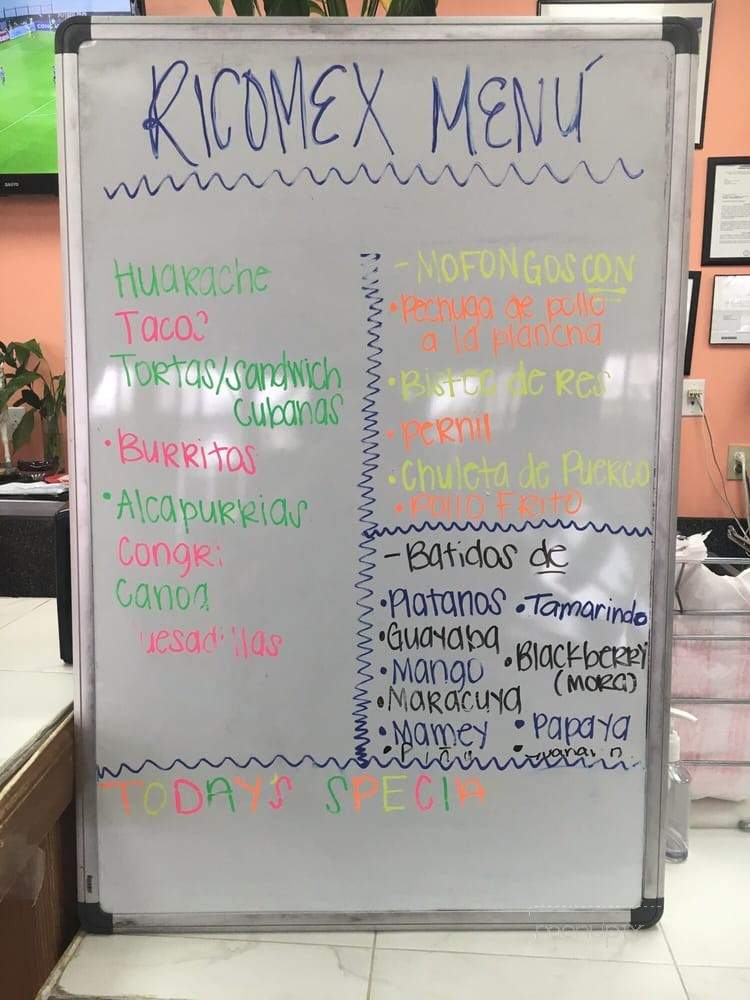 RICOMEX MENÚ
Huarache
Tacos
Tortas/Sandwich
Cubanas
• Burritos
• Alcapurrias
Congri
Canoa
uesadillas
- MOFONGOS CON
• Pechuga de pollo
a la plancha
• Bistec de Res
• Pernil
• Chuleta de Puerco
• Pollo Frito
- Batidos de
• Platanos
• Guayaba
• Mango
• Maracuya
• Mamey
• Piña
• Tamarindo
• Blackberry
(MORA)
• Papaya
TODAY'S SPECIA
SANYO
menupix